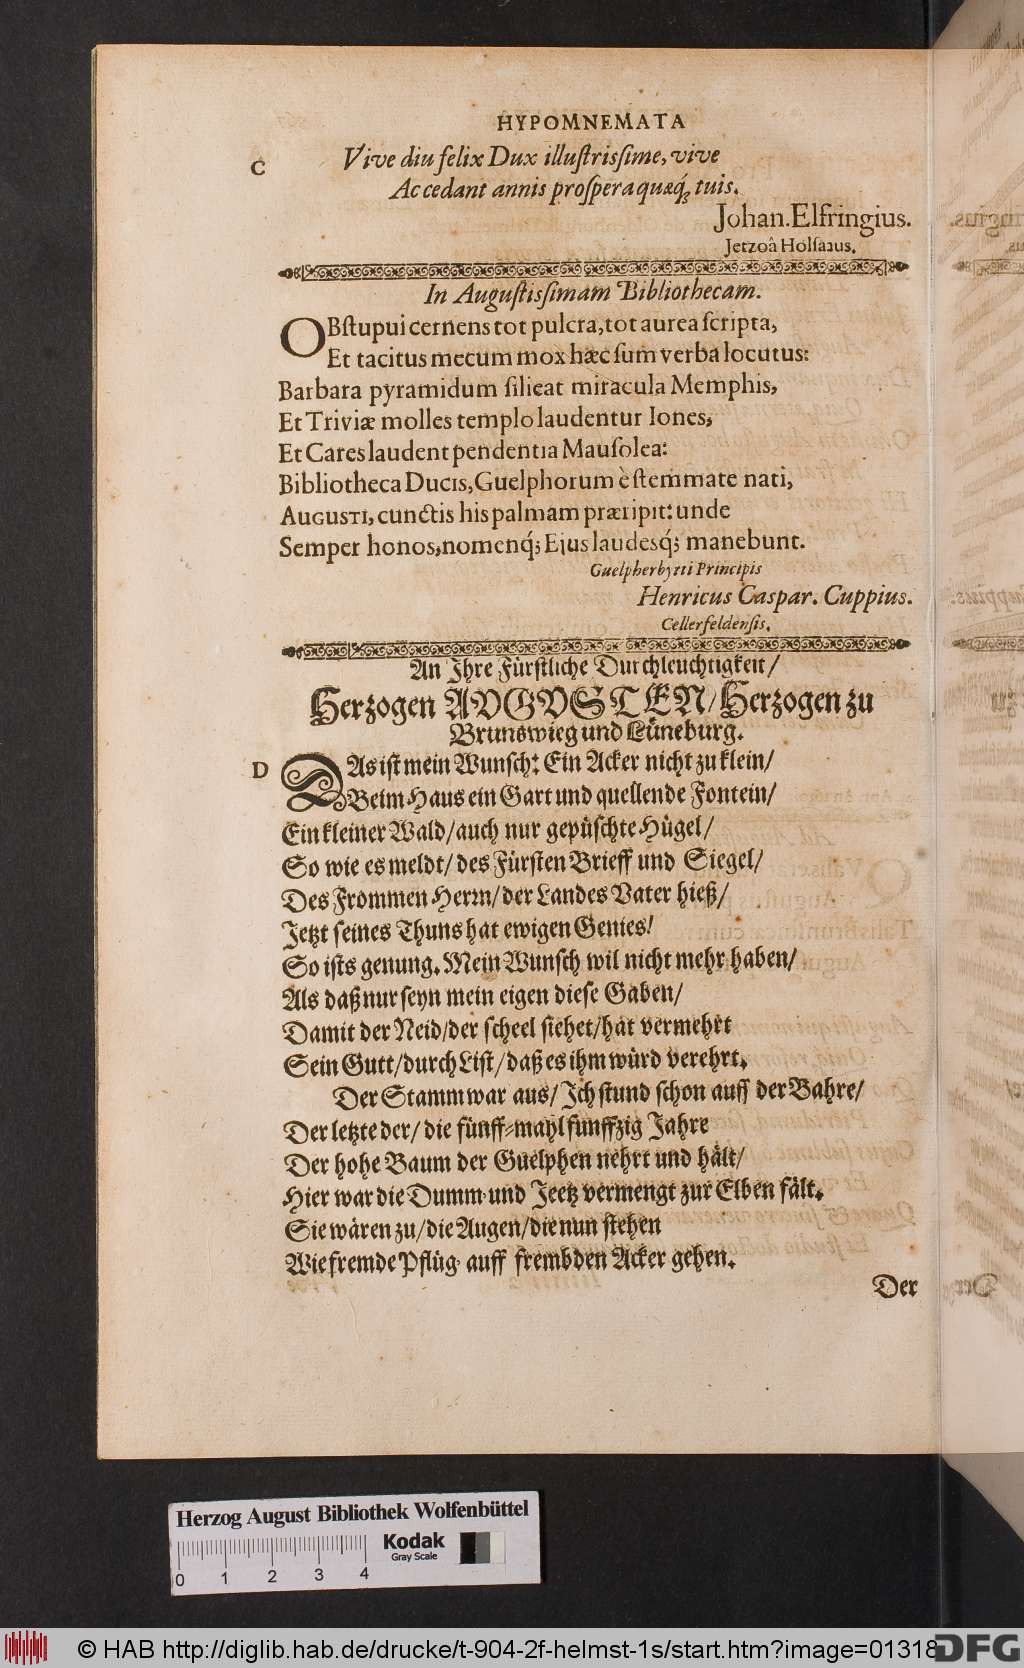 HYPOMNEMATA
C
Vive diu felix Dux illuſtrisſime, vive
Accedant annis proſpera quæq́; tuis.
Johan. Elfringius.
Jetzoâ Holſatus.
In Auguſtisſimam Bibliothecam.
OBſtupui cernens tot pulcra, tot aurea ſcripta,
Et tacitus mecum mox hæc ſum verba locutus:
Barbara pyramidum ſileat miracula Memphis,
Et Triviæ molles templo laudentur Iones,
Et Cares laudent pendentia Mauſolea:
Bibliotheca Ducis, Guelphorum è ſtemmate nati,
Augusti, cunctis his palmam præripit: unde
Semper honos, nomenq́; Ejus laudesq́; manebunt.
Guelpherbyrti Principis
Henricus Caspar. Cuppius.
Cellerfeldenſis.
An Ihre Fürſtliche Durchleuchtigkeit/
Herzogen AVGVSTEN/ Herzogen zu
Brunswieg und Lüneburg.
D
DAs iſt mein Wunſch: Ein Acker nicht zu klein/
Beim Haus ein Gart und quellende Fontein/
Ein kleiner Wald/ auch nur gepüſchte Hügel/
So wie es meldt/ des Fürſten Brieff und Siegel/
Des Frommen Herrn/ der Landes Vater hieß/
Jetzt ſeines Thuns hat ewigen Genies!
So iſts genung. Mein Wunſch wil nicht mehr haben/
Als daß nur ſeyn mein eigen dieſe Gaben/
Damit der Neid/ der ſcheel ſiehet/ hat vermehrt
Sein Gutt/ durch Liſt/ daß es ihm würd verehrt.
Der Stamm war aus/ Ich ſtund ſchon auff der Bahre/
Der letzte der/ die fünff-mahl funffzig Jahre
Der hohe Baum der Guelphen nehrt und hält/
Hier war die Dumm- und Jeetz vermengt zur Elben fält.
Sie wären zu/ die Augen/ die nun ſtehen
Wie fremde Pflüg- auff frembden Acker gehen.
Der
Herzog August Bibliothek Wolfenbüttel
Kodak
Gray Scale
0 1 2 3 4
© HAB http://diglib.hab.de/drucke/t-904-2f-helmst-1s/start.htm?image=01318
DFG